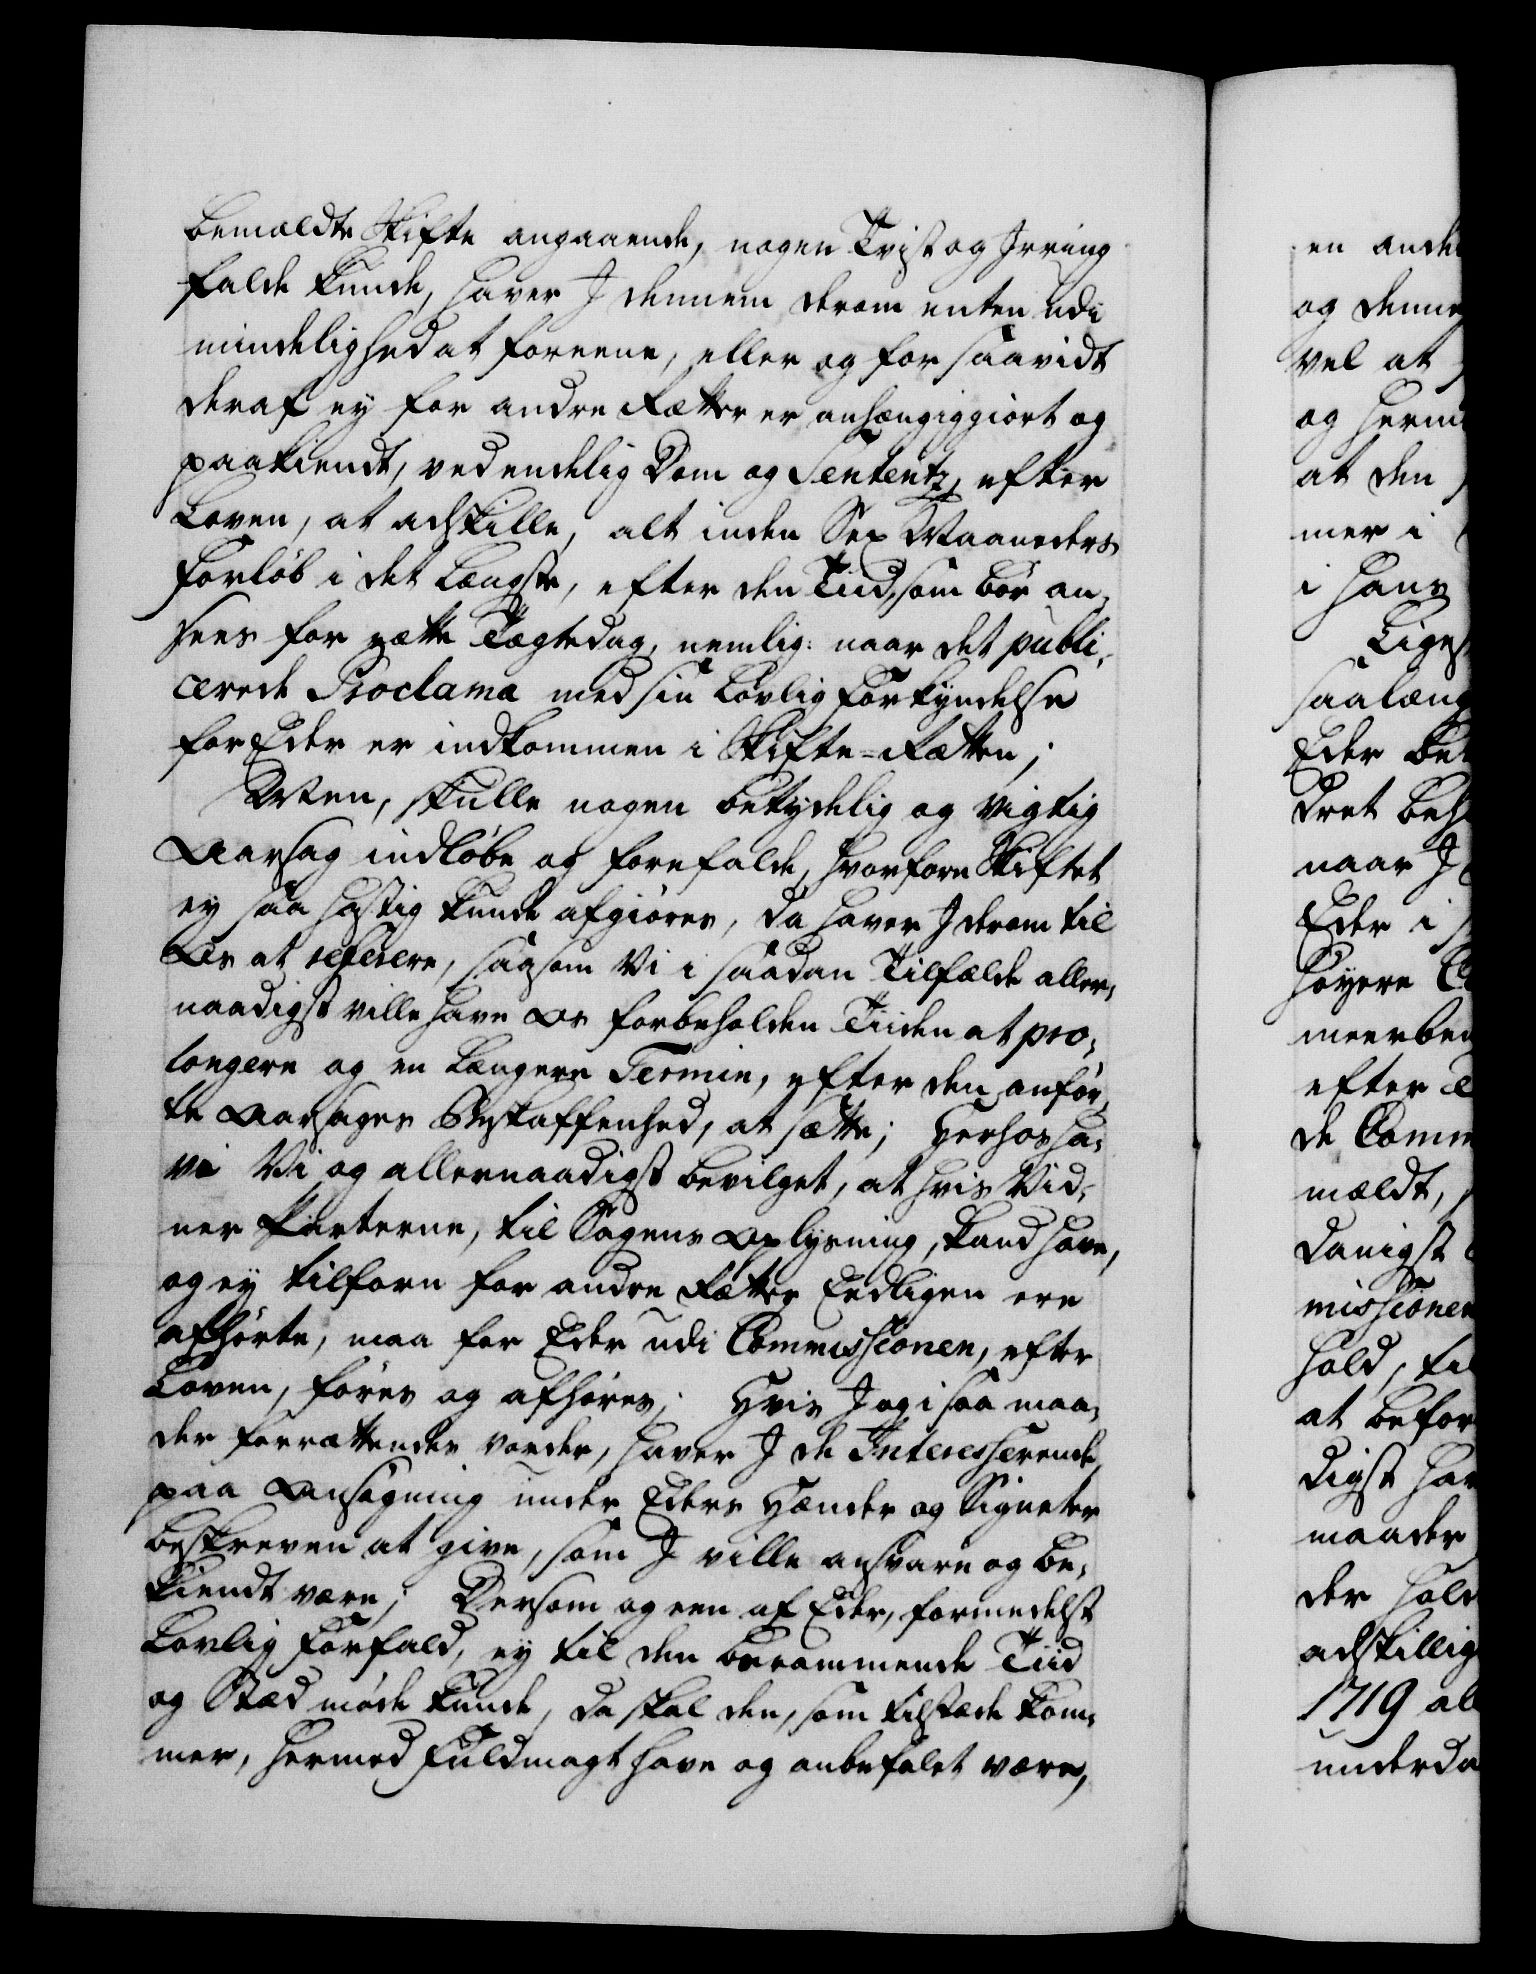 bemældte Skifte angaaende, nogen Tvist og Irring
falde kunde, haver I dennem derom enten udi
mindelighed at foreene, eller og for saavidt
deraf ey for andre Rætter er anhængiggiort og
paakiendt, ved endelig Dom og Sententz, efter
Loven, at adskille, alt inden Sex Maaneders
Forløb i det længste, efter den Tiid, som bør an-
sees for rætte Tægtedag, nemlig: naar det publi-
cerede Proclama med sin lovlig Forkyndelse
for Eder er indkommen i Skifte-Rætten;
Men, skulle nogen betydelig og vigtig
Aarsag indløbe og forefalde, hvorfore Skiftet
ey saa hastig kunde afgiøres, da haver I derom til
Os at referere, saasom Vi i saadan Tilfælde aller-
naadigst ville have Os forbeholden Tiiden at pro-
longere og en længere Termin, efter den anfør-
te Aarsages Beskaffenhed, at sætte; Herhos ha-
ve Vi og allernaadigst bevilget, at hvis Vid-
ner Parterne, til Sagens Oplysning, kand have,
og ey tilforn for andre Rætter Eedligen ere
afhørte, maa for Eder udi Commissionen, efter
Loven, føres og afhøres; Hvis I og i saa maa-
der forrættendes vorder, haver I de Interesserende,
paa Ansøgning under Eders Hænder og Signeter
beskreven at give, som I ville ansvare og be-
kiendt være; Dersom og een af Eder, formedelst
Lovlig Forfald, ey til den berammende Tiid
og Stæd møde kunde, da skal den, som tilstæde kom-
mer, hermed Fuldmagt have og anbefalet være,
en ande
og denne
vel at
og herm
at den
mer i
i hans
Liges
saalæng
Eder bet
dret beh
naar I
Eder i
høyere
meerbem
efter
de Comm
mældt,
danigst
missionen
hold, til
at befor
digst har
maader
der hold
adskillig
1719 al
underda